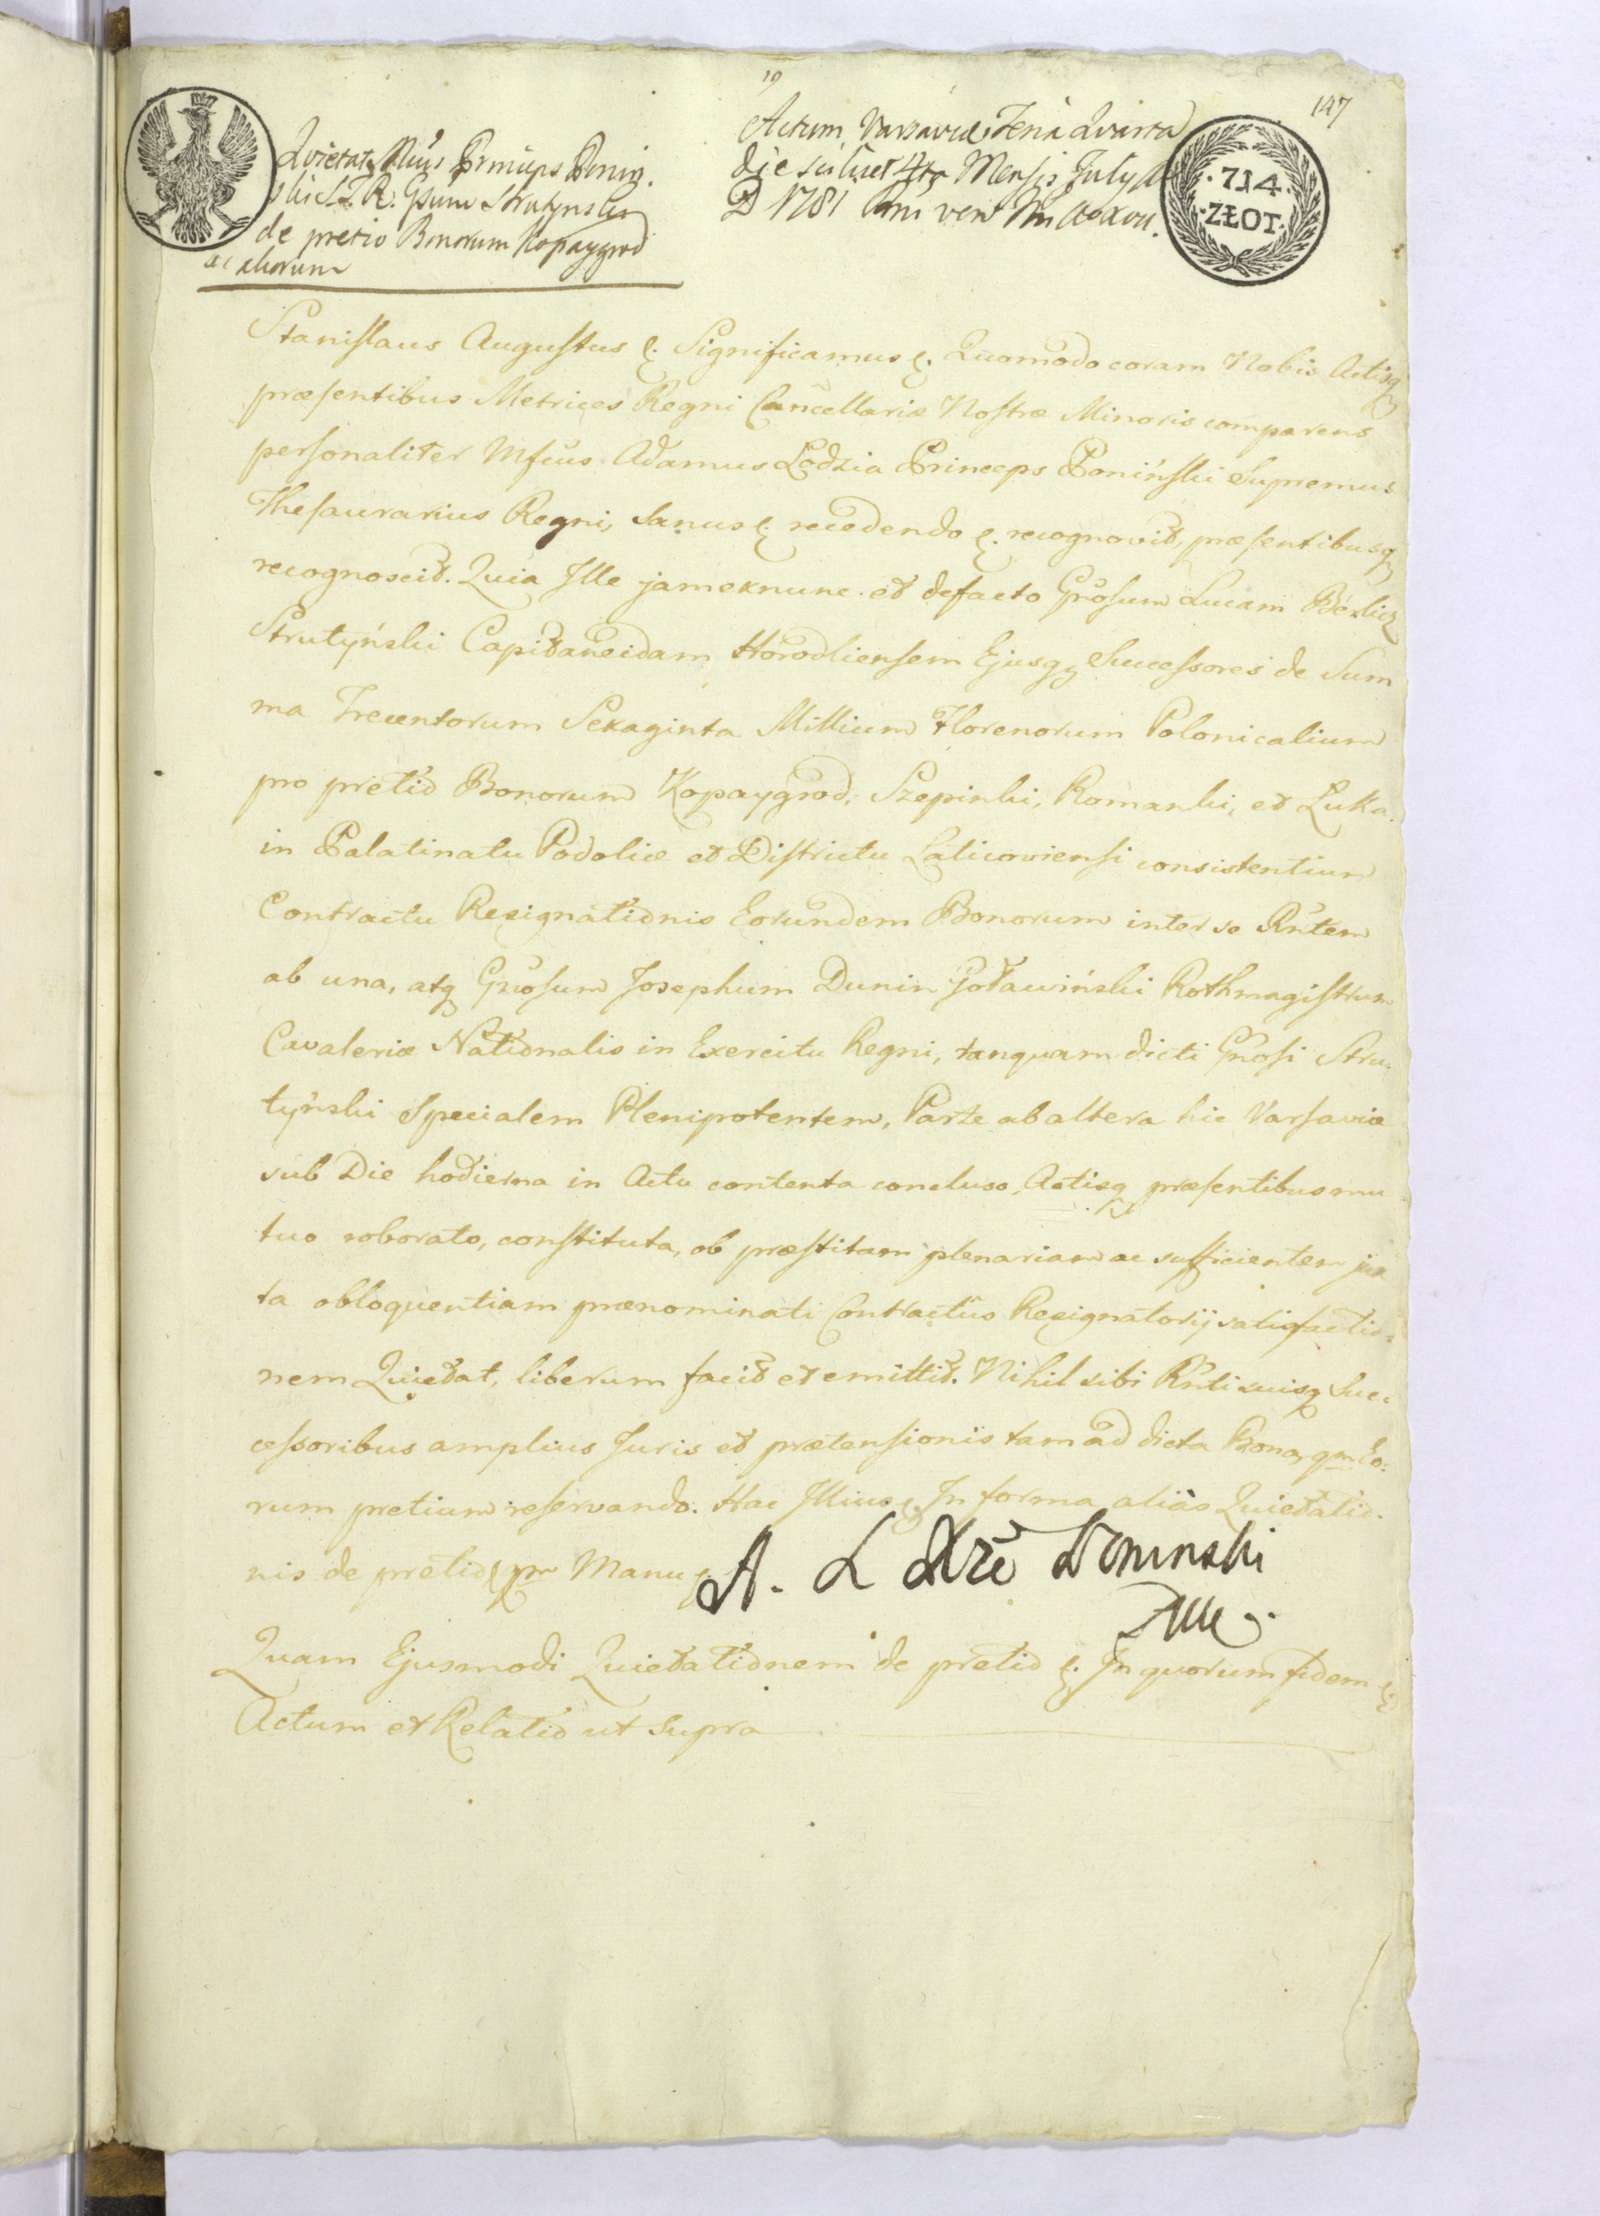 19
147
Quietat Mcus Princeps Ponin.
ski S. T. R. Gsum Strutynski
de pretio Bonorum Kopaygrod
ac aliorum
Actum Varsaviæ Feria Quarta
die scilicet 4ta Mensis July A
D 1781 Rni vero Nri Ao XVII.
·7J4·
·ZŁOT·
Stanislaus Augustus &. Significamus &. Quomodo coram Nobis Actisq
præsentibus Metrices Regni Cancellariæ Nostræ Minoris comparens
personaliter Mfcus Adamus Lodzia Princeps Poniński Supremus
Thesaurarius Regni, Sanus &. recedendo &. recognovit, præsentibusq
recognoscit. Quia Ille jam ex nunc et de facto Gñosum Lucam Berlicz
Strutyński Capitaneidam Horodliensem Ejusq Successores de Sum
ma Trecentorum Sexaginta Millium Florenorum Polonicalium
pro pretio Bonorum Kopaygrod, Szepinki, Romanki, et Luka
in Palatinatu Podoliæ et Districtu Laticoviensi consistentium
Contractu Resignationis Eorundem Bonorum inter se Rñtem
ab una, atq Gñosum Josephum Dunin Goławiński Rothmagistrum
Cavaleriæ Nationalis in Exercitu Regni, tanquam dicti Gñosi Stru-
tyński Specialem Plenipotentem, Parte ab altera hic Varsaviæ
sub Die hodierna in Actu contenta concluso, Actisq præsentibus mu
tuo roborato, constituta, ob præstitam plenariam ac sufficientem jux
ta obloquentiam prænominati Contractus Resignatorij satisfactio-
nem Quietat, liberum facit et emittit. Nihil sibi Rñti suisq Suc-
cessoribus amplius Juris et prætensionis tam ad dicta Bona, qm Eo-
rum pretium reservando. Hac Illius &. In forma alias Quietatio-
nis de pretio &. pr Manu &
A. L Xże Poninski
Quam Ejusmodi Quietationem de pretio &. In quorum fidem &
Actum et Relatio ut supra